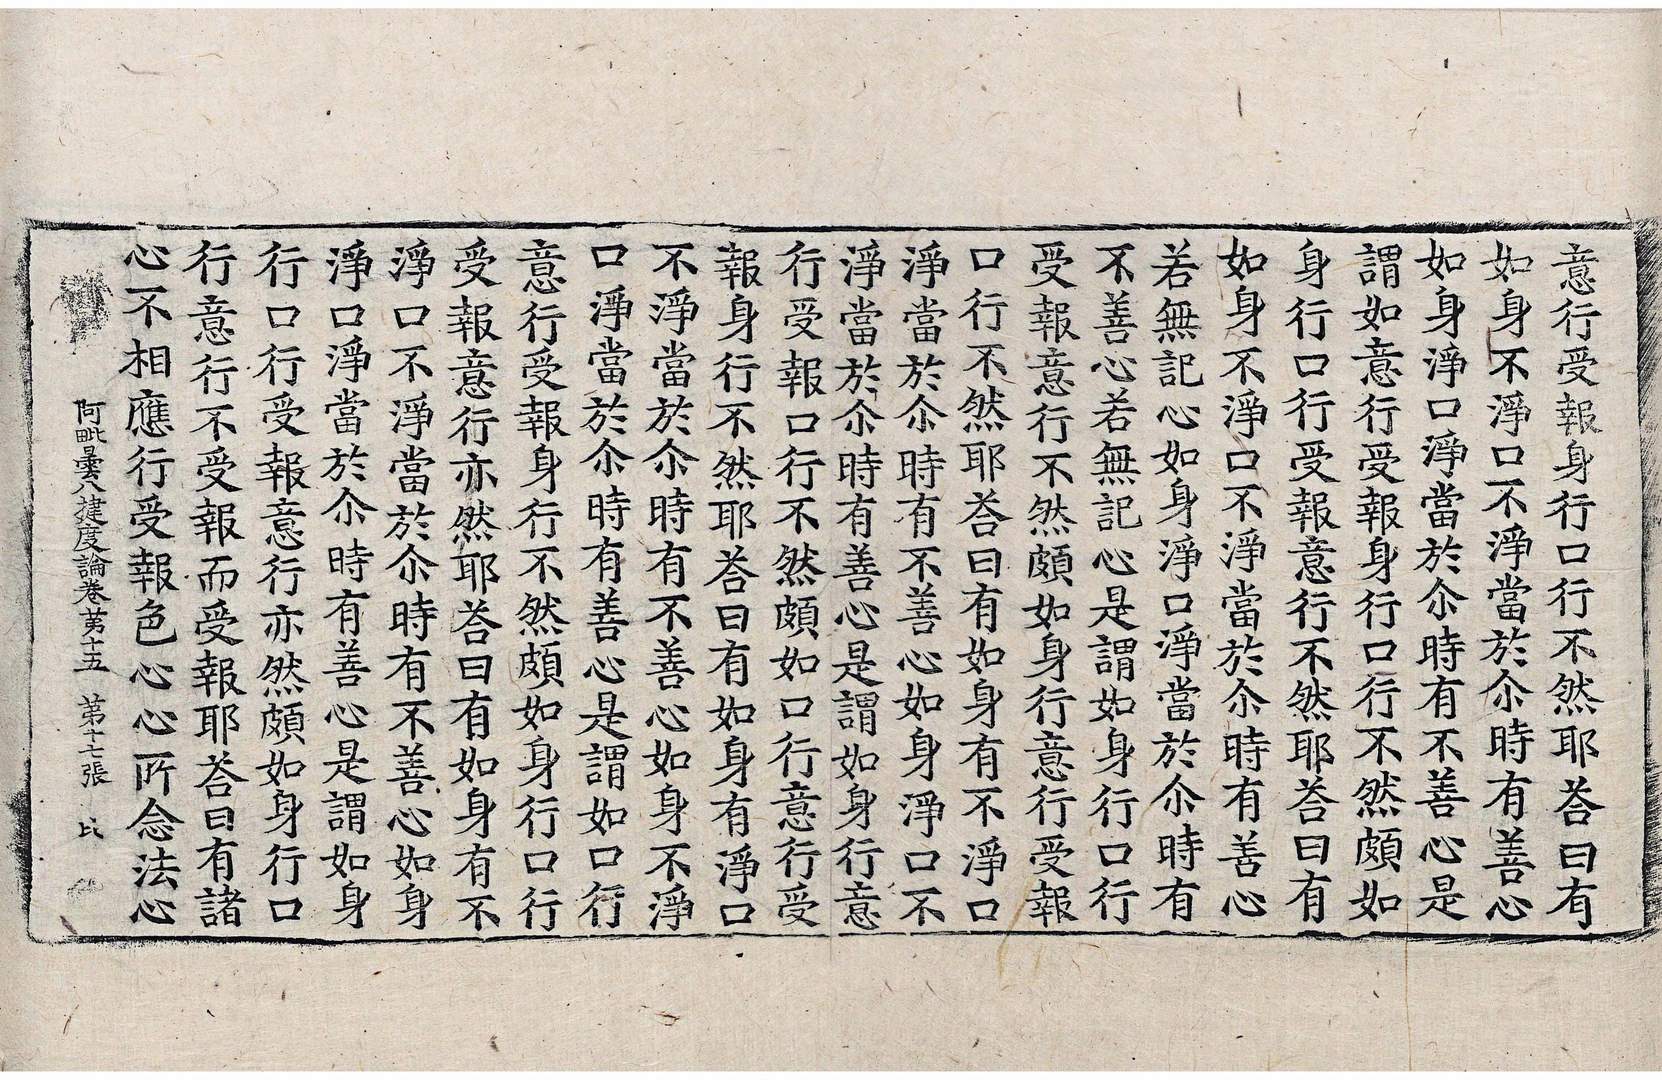 意行受報身行口行不然耶荅曰有
如身不淨口不淨當於尒時有善心
如身淨口淨當於尒時有不善心是
謂如意行受報身行口行不然頗如
身行口行受報意行不然耶荅曰有
如身不淨口不淨當於尒時有善心
若無記心如身淨口淨當於尒時有
不善心若無記心是謂如身行口行
受報意行不然頗如身行意行受報
口行不然耶荅曰有如身有不淨口
淨當於尒時有不善心如身淨口不
淨當於尒時有善心是謂如身行意
行受報口行不然頗如口行意行受
報身行不然耶荅曰有如身有淨口
不淨當於尒時有不善心如身不淨
口淨當於尒時有善心是謂如口行
意行受報身行不然頗如身行口行
受報意行亦然耶荅曰有如身有不
淨口不淨當於尒時有不善心如身
淨口淨當於尒時有善心是謂如身
行口行受報意行亦然頗如身行口
行意行不受報而受報耶荅曰有諸
心不相應行受報色心心所念法心
阿毗曇八揵度論卷苐十五 第十七張 比